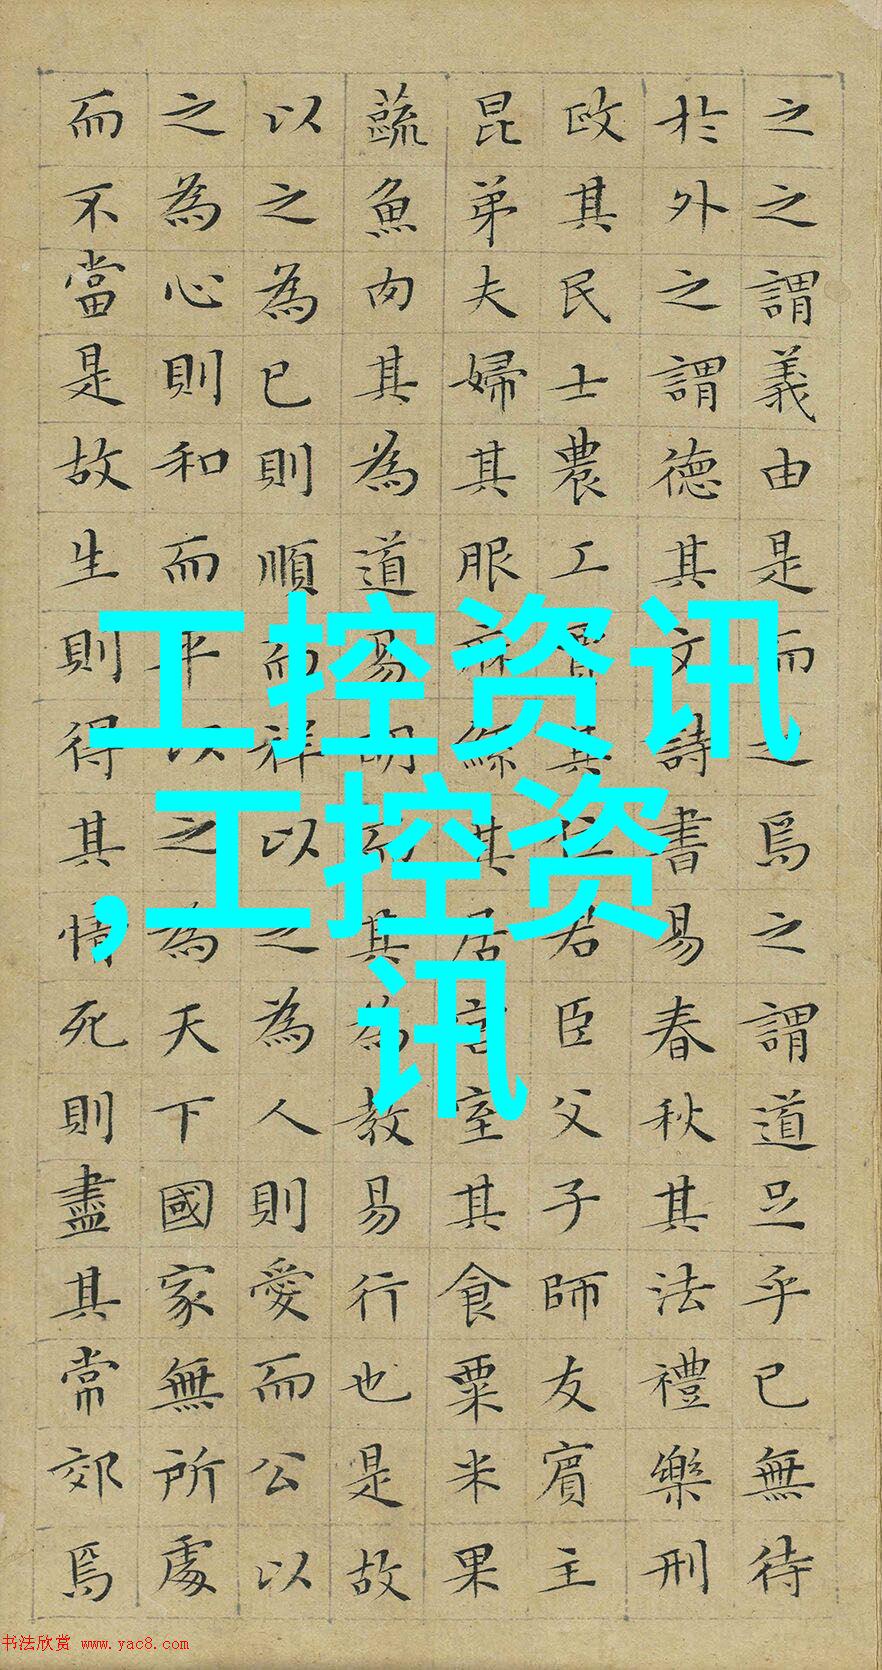 之之謂義由是而之焉之謂道足乎已無待
於外之謂德其文詩書易春秋其法禮樂刑
政其民士農工賈其位君臣父子師友賓主
昆弟夫婦其服麻絲其居宮室其食粟米果
蔬魚肉其為道易明而其為教易行也是故
以之為已則順而祥以之為人則愛而公以
之為心則和而平以之為天下國家無所處
而不當是故生則得其情死則盡其常郊焉
工控资讯
,工控资
讯
书法欣赏 www.yac8.com